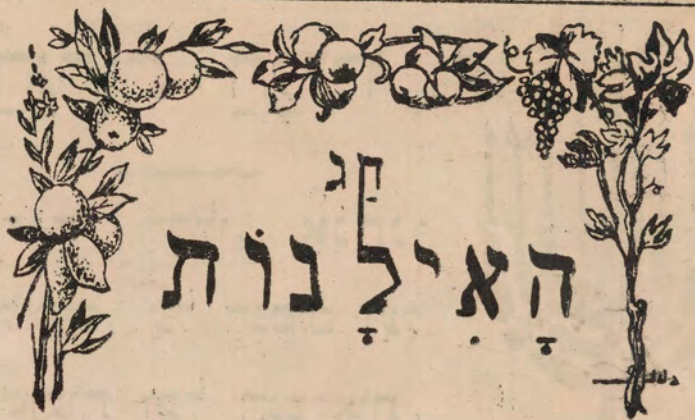 חג
הָאִילָנוֹת